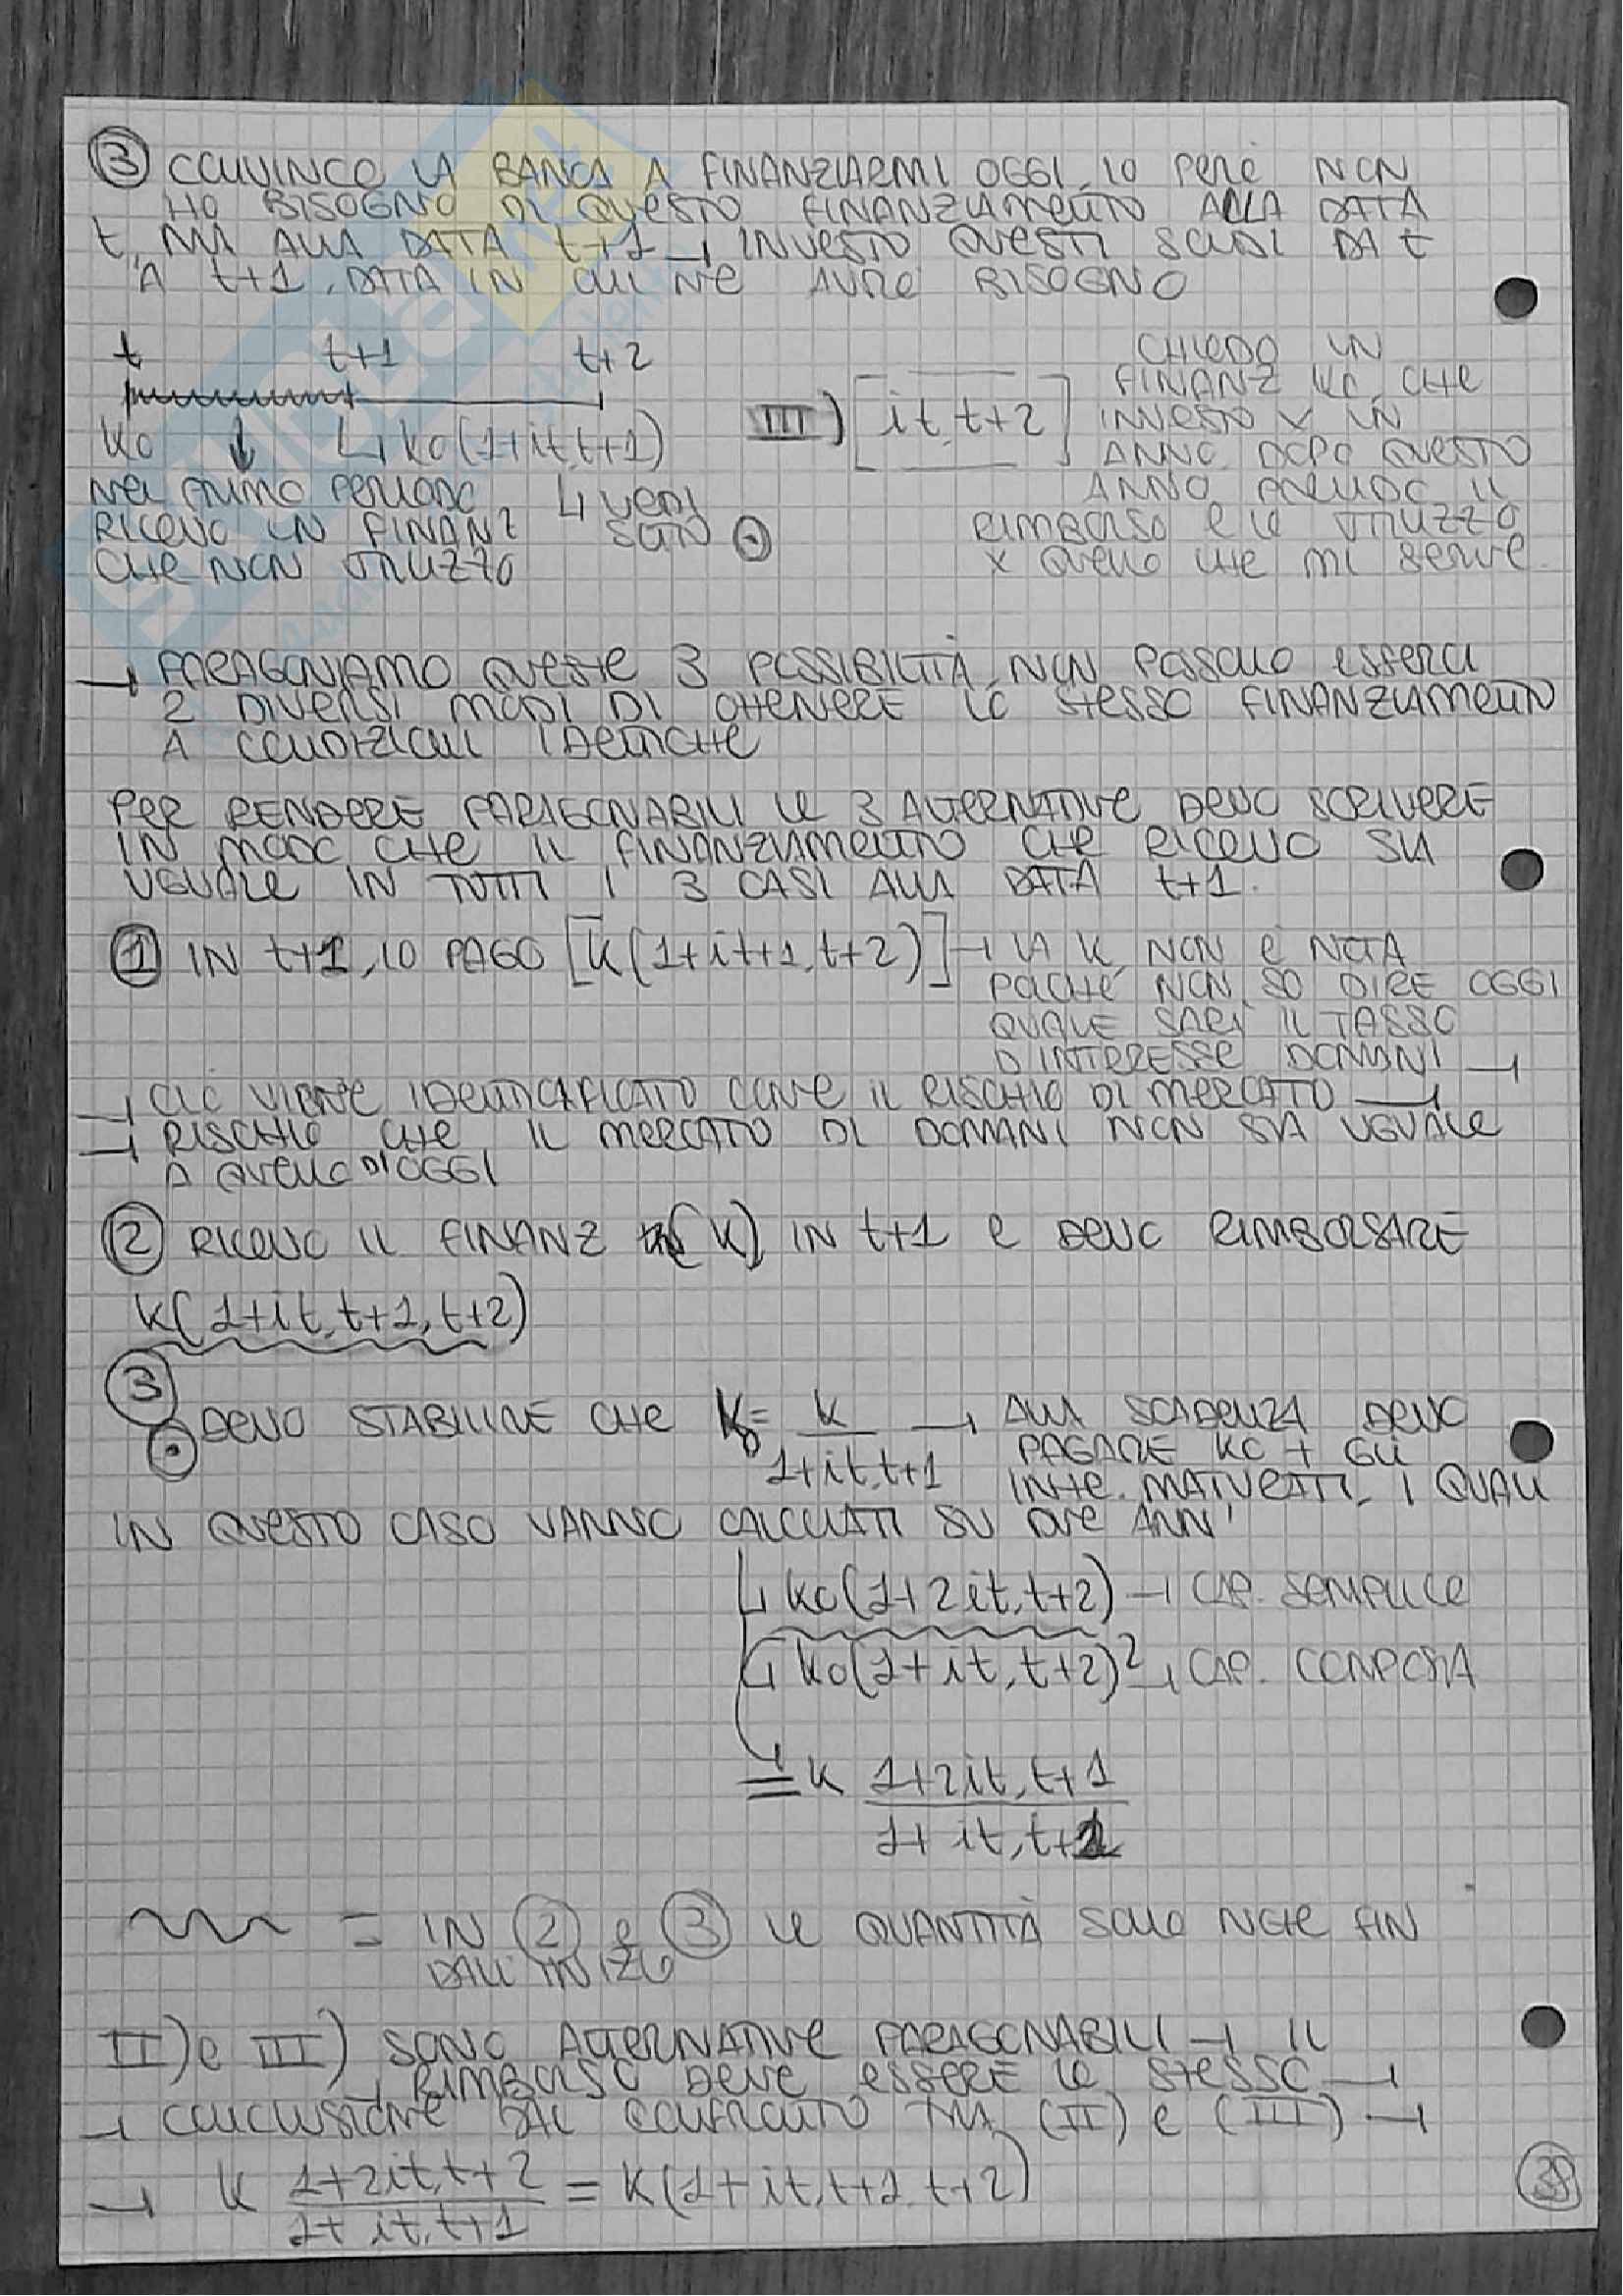 ③ CONVINCO LA BANCA A FINANZIARMI OGGI, IO PERÒ NON
HO BISOGNO DI QUESTO FINANZIAMENTO ALLA DATA
t, MA ALLA DATA t+1 → INVESTO QUESTI SOLDI DA t
A t+1, DATA IN CUI NE AVRÒ BISOGNO
t t+1 t+2
K0 ↓ ↳ K0(1+it,t+1)
NEL PRIMO PERIODO ↳ VEDI
RICEVO UN FINANZ SOTTO ⊙
CHE NON UTILIZZO
III) [it,t+2]
CHIEDO UN
FINANZ K0, CHE
INVESTO X UN
ANNO, DOPO QUESTO
ANNO, PRENDO IL
RIMBORSO E LO UTILIZZO
X QUELLO CHE MI SERVE.
→ PARAGONIAMO QUESTE 3 POSSIBILITÀ, NON POSSONO ESSERCI
2 DIVERSI MODI DI OTTENERE LO STESSO FINANZIAMENTO
A CONDIZIONI IDENTICHE
PER RENDERE PARAGONABILI LE 3 ALTERNATIVE DEVO SCRIVERE
IN MODO CHE IL FINANZIAMENTO CHE RICEVO SIA
UGUALE IN TUTTI I 3 CASI ALLA DATA t+1.
① IN t+1, IO PAGO [K(1+it+1,t+2)] → LA K NON È NOTA
POICHÉ NON SO DIRE OGGI
QUALE SARÀ IL TASSO
D INTERESSE DOMANI →
→ CIÒ VIENE IDENTIFICATO COME IL RISCHIO DI MERCATO →
→ RISCHIO CHE IL MERCATO DI DOMANI NON SIA UGUALE
A QUELLO DI OGGI
② RICEVO IL FINANZ (K) IN t+1 E DEVO RIMBORSARE
K(1+it,t+1,t+2)
③
⊙ DEVO STABILIRE CHE K0 = K / 1+it,t+1 → ALLA SCADENZA DEVO
PAGARE K0 + GLI
INTE. MATURATI, I QUALI
IN QUESTO CASO VANNO CALCOLATI SU DUE ANNI
↳ K0(1+2it,t+2) → CAP. SEMPLICE
↳ K0(1+it,t+2)² → CAP. COMPOSTA
= K 1+2it,t+1 / 1+it,t+1
~~~ = IN ② e ③ LE QUANTITÀ SONO NOTE FIN
DALL'INIZIO
II) e III) SONO ALTERNATIVE PARAGONABILI → IL
→ RIMBORSO DEVE ESSERE LO STESSO →
→ CONCLUSIONE DAL CONFRONTO TRA (II) e (III) →
→ K 1+2it,t+2 / 1+it,t+1 = K(1+it,t+1,t+2)
38